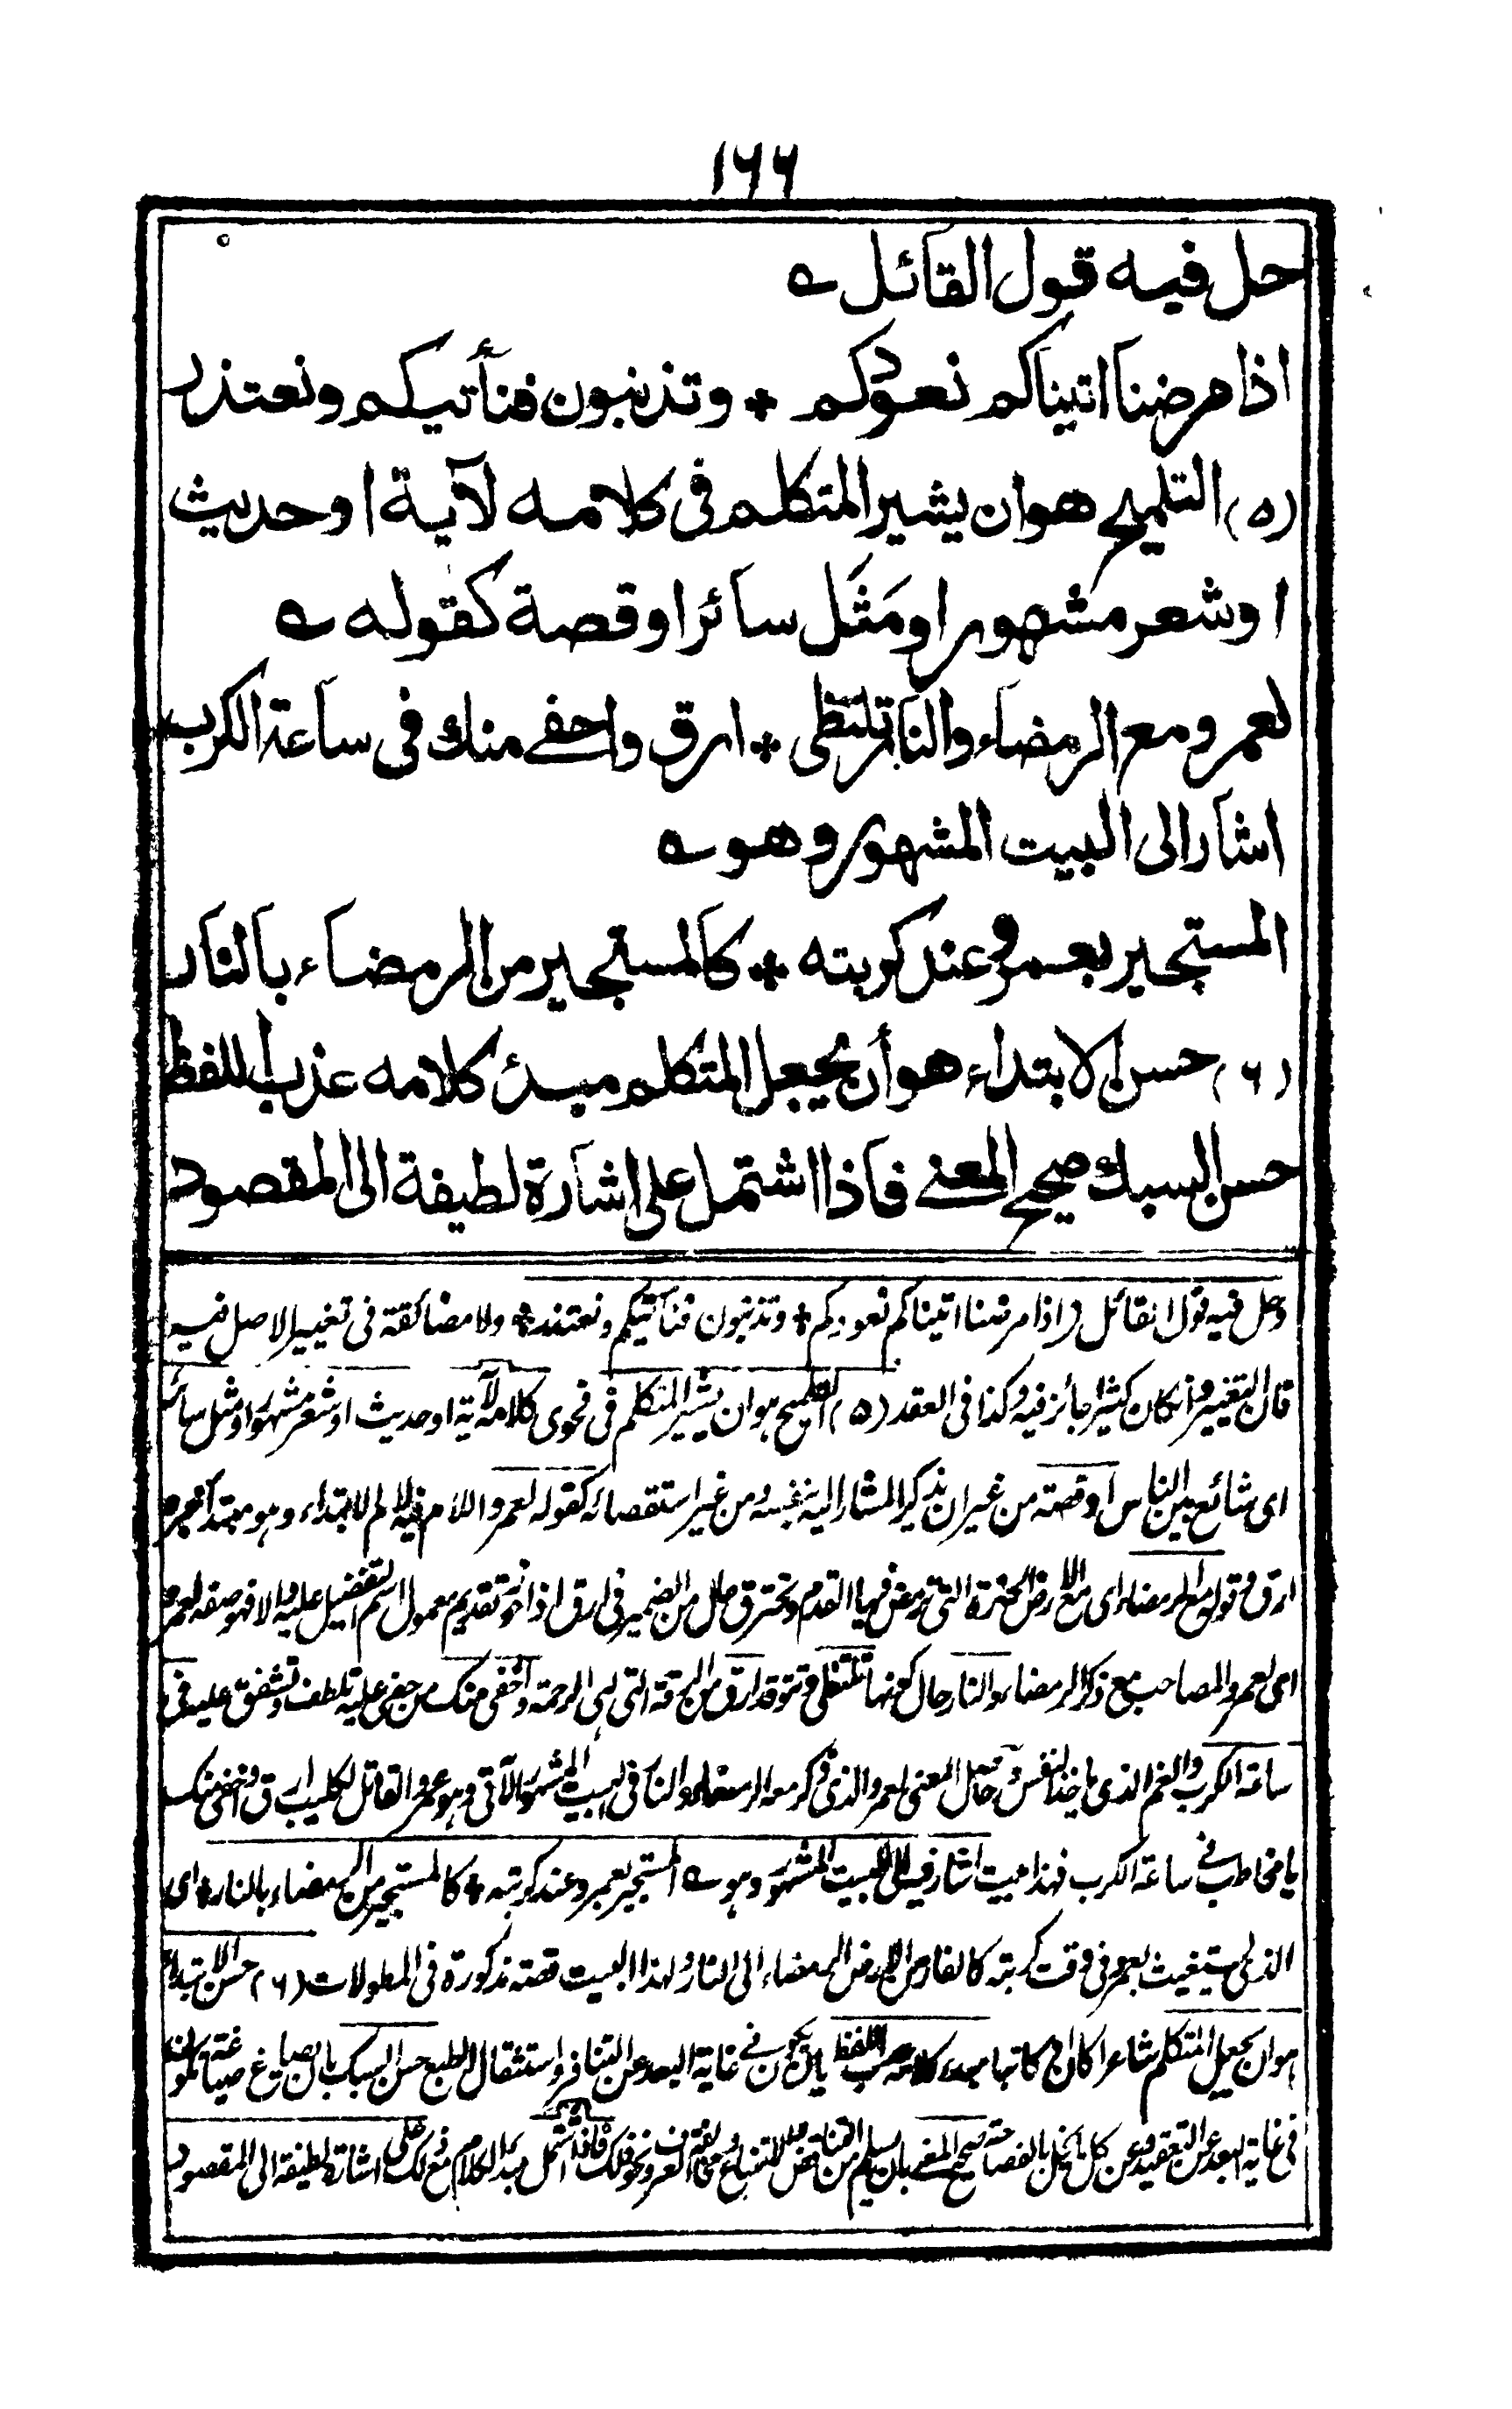 ١٦٦
حل فيه قول القائل ؎
اذا مرضنا اتيناكم نعودكم * وتذنبون فنأتيكم ونعتذر
(٥) التلميح هو ان يشير المتكلم فى كلامه لآية او حديث
او شعر مشهور او مَثَل سائر او قصة كقوله ؎
لعمرو مع الرمضاء والنار تلتظى * ارق واحفے منك فى ساعة الكرب
اشار الى البيت المشهور وهو ؎
المستجير بعمرو عند كربته * كالمستجير من الرمضاء بالنار
(٦) حسن الابتداء هو أن يجعل المتكلم مبدئ كلامه عذب اللفظ
حسن السبك صحيح المعنے فاذا اشتمل على اشارة لطيفة الى المقصود
وحل فيه قول القائل اذا مرضنا اتيناكم نعودكم * وتذنبون فنأتيكم ونعتذر * ولا مضائقة فى تغيير الاصل فيه
فان التغيير وان كان كثيرا جائز فيه وكذا فى العقد (٥) التلميح هو ان يشير المتكلم فى فحوى كلامه لآية او حديث او شعر مشهور او مثل سائر
اى شائع بين الناس او قصة من غير ان يذكر المشار اليه بنفسه ومن غير استقصائه كقوله لعمرو اللام فيه لام الابتداء وهو مبتدأ خبره
ارق وقوله مع الرمضاء اى مع الارض الحارة التى ترمض فيها القدم وتحترق حال من الضمير فى ارق اذا جوز تقديم معمول اسم التفضيل عليه والا فهو صفة لعمرو
اى لعمرو المصاحب مع ذكر الرمضاء والنار حال كونها تلتظى وتتوقد ارق من الرقة التى هى الرحمة واحفى منك من حفى عليه تلطف وتشفق عليه فى
ساعة الكرب والغم الذى ياخذ النفس وحاصل المعنى لعمرو الذى ذكر مع الرمضاء والنار فى البيت المشهور الآتى وهو عمرو القاتل لكليب ارق واحفى منك
يا مخاطب فے ساعة الكرب فهذا البيت اشار فيه الى البيت المشهور وهو ؎ المستجير بعمرو عند كربته * كالمستجير من الرمضاء بالنار * اى
الذى يستغيث بعمرو فى وقت كربته كالفار من الارض الرمضاء الى النار ولهذا البيت قصة مذكورة فى المطولات (٦) حسن الابتداء
هو ان يجعل المتكلم شاعرا كان او كاتبا مبدء كلامه عذب اللفظ بان يكون فے غاية البعد عن التنافر واستثقال الطبع حسن السبك بان يصاغ صياغة تكون
فى غاية البعد عن التعقيد وعن كل ما يخل بالفصاحة صحيح المعنے بان يسلم من التناقض والامتناع ومخالفة العرف ونحو ذلك فاذا اشتمل مبدأ الكلام مع ذلك على اشارة لطيفة الى المقصود